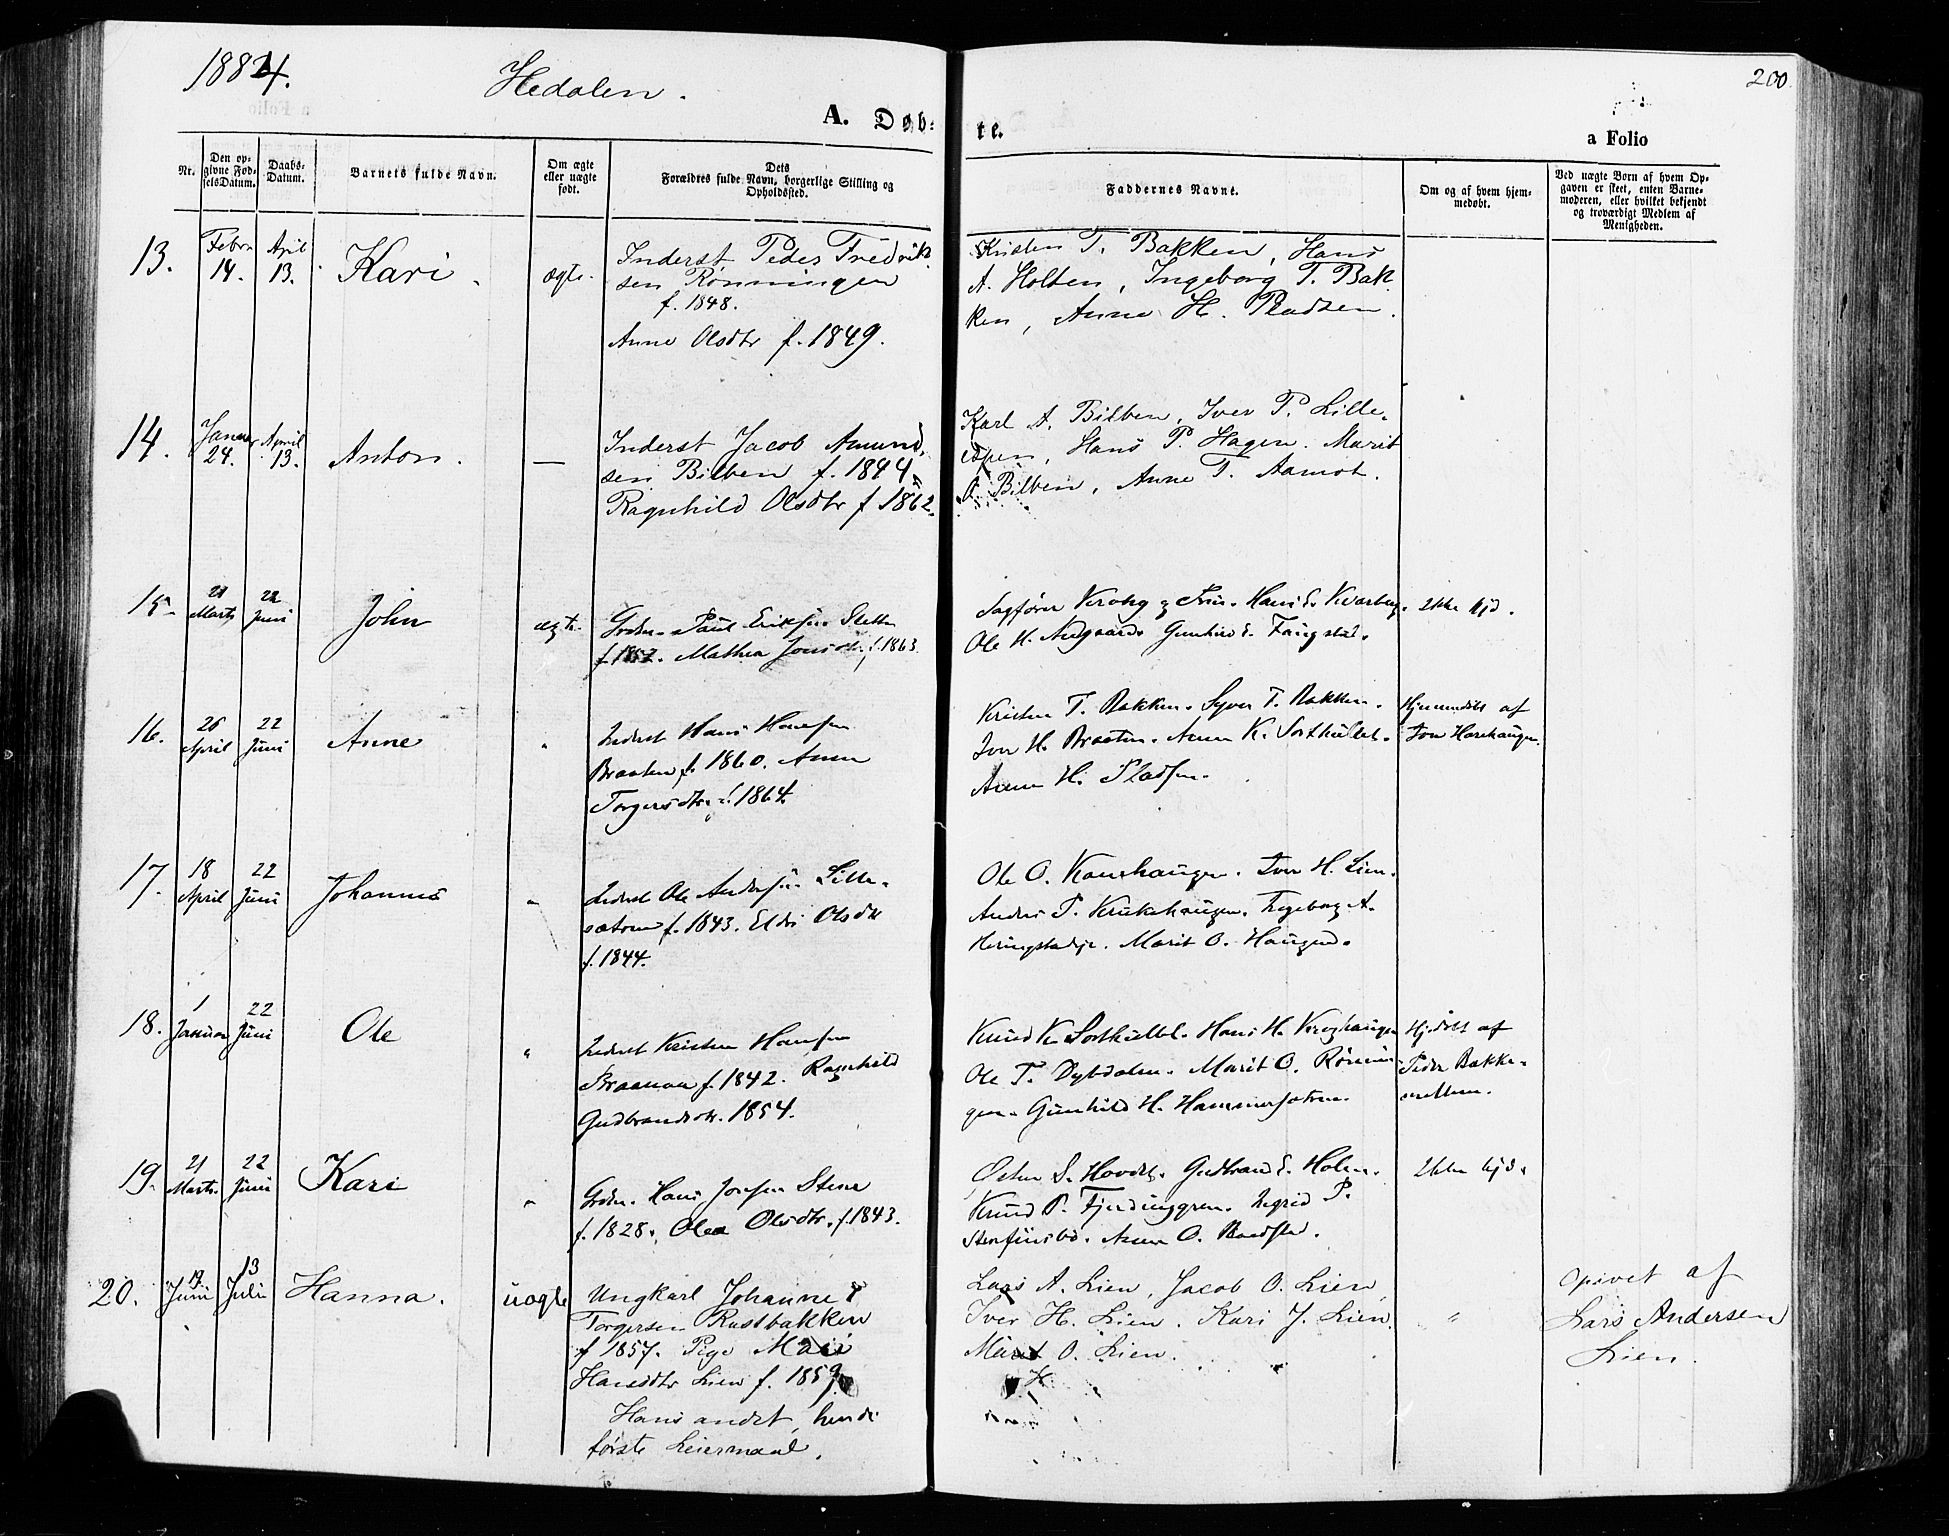 1884.
Hedalen.
200
A. Døb-
te.
a Folio
Nr.
Den op-
givne Fød-
selsDatum.
Daabs-
Datum.
Barnets fulde Navn.
Om ægte
eller uægte
født.
Dets
Forældres fulde Navn, borgerlige Stilling og
Opholdssted.
Faddernes Navne.
Om og af hvem hjem-
medøbt.
Ved uægte Børn af hvem Op-
gaven er skeet, enten Barne-
moderen, eller hvilket bekjendt
og troværdigt Medlem af
Menigheden.
13.
Febr
14.
April
13.
Kari
ægte
Inderst Peder Fredrik-
sen Rønningen
f. 1848.
Anne Olsdtr f. 1849.
Kristen T. Bakken, Hans
A. Holten, Ingeborg T. Bak-
ken, Anne H. Pladsen.
14.
Januar
24.
April
13.
Anton.
—
Inderst Jacob Amund-
sen Bilben f. 1844
Ragnhild Olsdtr f 1862.
Karl A. Bilben, Iver P. Lille-
Hans P. Hagen. Marit
O. Bilben, Anne T. Aamot.
15.
21
Marts
22
Juni
John
ægte
Grdbr. Paul Eriksen
f. 1857. Mathea Jonsdtr. f. 1863.
Sagfører Krohg & Frue. Hans E. Kvarberg.
Ole H. Nedgaard. Gunhild E. Fangstad.
Ikke hjd.
16.
26
April
22
Juni
Anne
"
Inderst Hans Hansen
Braaten f. 1860. Anne
Torgersdtr. f. 1864.
Kristen T. Bakken. Syver T. Bakken.
Iver H. Braaten. Anne K. Sorthullet.
Anne H. Pladsen.
Hjemmedøbt af
Iver Harehaugen.
17.
18
April
22
Juni
Johannes
"
Inderst Ole Andersen Lille-
sætren f. 1843. Eldri Olsdtr
f. 1844.
Ole O. Iver H. Lien.
Anders P. Krukehaugen. Ingeborg A.
Marit O. Haugen.
18.
1
Januar
22
Juni
Ole
"
Inderst Kristen Hansen
f. 1842. Ragnhild
Gudbrandsdtr. 1854.
Knud K. Sorthullet. Hans H. Kroghaugen
Ole T. Dybdalen. Marit O. Rønnin-
gen. Gunhild H. Hammersætren.
Hjdøbt af
Peder Bakke-
mellem.
19.
21
Marts.
22
Juni
Kari
"
Grdbr. Hans Jonsen Stene
f. 1828. Olea Olsdtr. f. 1843.
Østen S. Hovde. Gudbrand E. Holen.
Knud P. Fjerdinggren. Ingrid P.
Stenfinsbø. Anne O. Baadstad.
Ikke hjd.
20.
17
Juni
13
Juli
Hanna.
uægte
Ungkarl Johannes
Torgersen Rustbakken
f 1857. Pige Mari
Hansdtr Lien f. 1859
Hans andet, hendes
første Leiermaal.
Lars A. Lien, Jacob O. Lien,
Iver H. Lien. Kari J. Lien.
Marit O. Lien.
H
"
Opivet af
Lars Andersen
Lien.